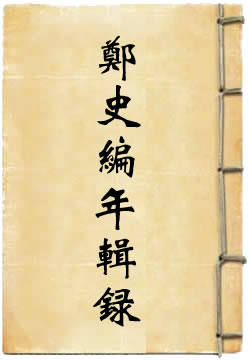 鄭史編年輯録